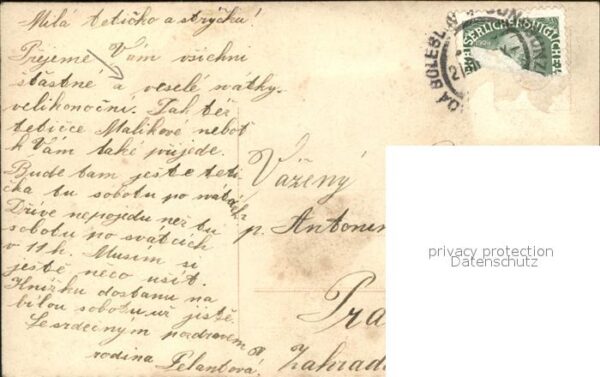 Milá tetičko a strýčku!
Přejeme Vám všichni
šťastné a veselé svátky
velikonoční. Tak též
tetičce Malikové neboť
k Vám také přijede.
Bude tam ještě teti
čka tu sobotu po svátcích?
Dříve nepojedu než tu
sobotu po svátcích
v 11 h. Musím si
ještě neco ušít.
Knížku dostanu na
bílou sobotu už jistě.
Se srdečným pozdravem
rodina Pelantová.
Vážený
p. Antonin
Pra
Zahrad
DA BOLESL
KAISERLICHE KÖNIGLICHE
privacy protection
Datenschutz